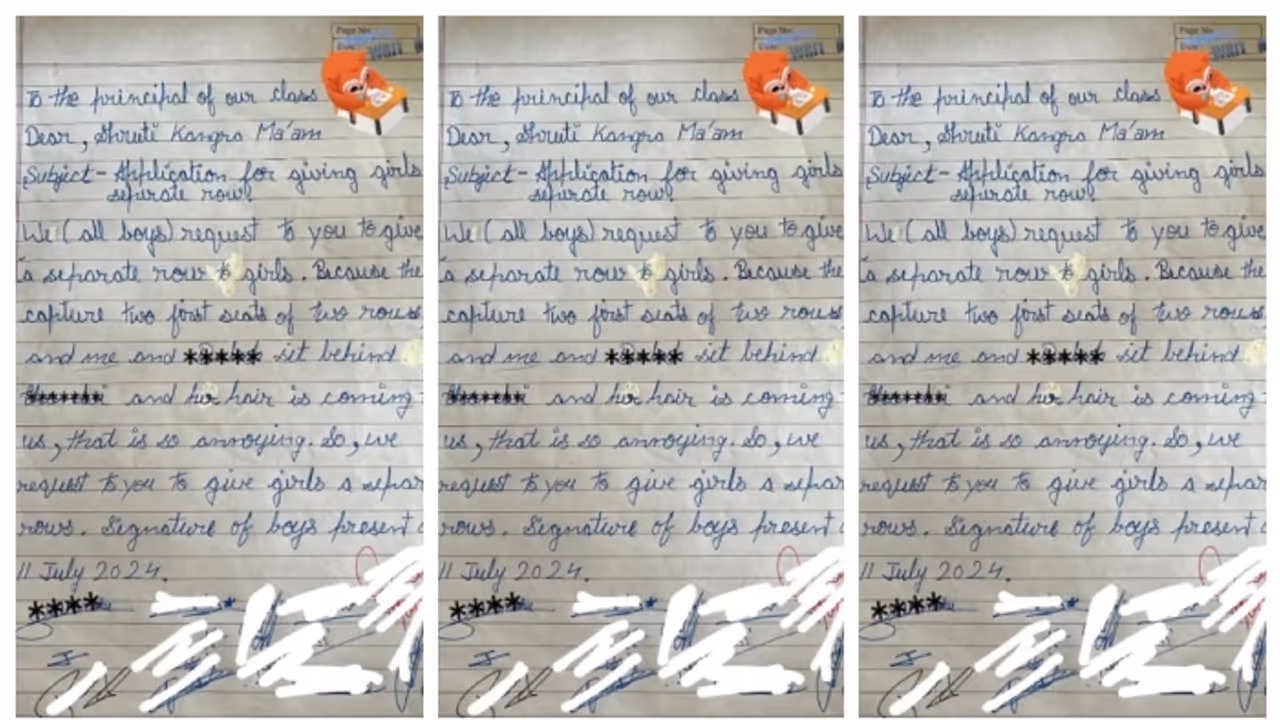 Page No:
To the principal of our class
Dear, Shruti Kangra Ma'am
Subject - Application for giving girls
separate row.
We (all boys) request to you to give
a separate row to girls. Because the
capture two first seats of two rows
and me and ***** sit behind
and her hair is coming
us, that is so annoying. So, we
request to you to give girls a separ
rows. Signature of boys present
11 July 2024.
****
Page No:
To the principal of our class
Dear, Shruti Kangra Ma'am
Subject - Application for giving girls
separate row.
We (all boys) request to you to give
a separate row to girls. Because the
capture two first seats of two rows
and me and ***** sit behind
and her hair is coming
us, that is so annoying. So, we
request to you to give girls a separ
rows. Signature of boys present
11 July 2024.
****
Page No:
To the principal of our class
Dear, Shruti Kangra Ma'am
Subject - Application for giving girls
separate row.
We (all boys) request to you to give
a separate row to girls. Because the
capture two first seats of two rows
and me and ***** sit behind
and her hair is coming
us, that is so annoying. So, we
request to you to give girls a separ
rows. Signature of boys present
11 July 2024.
****